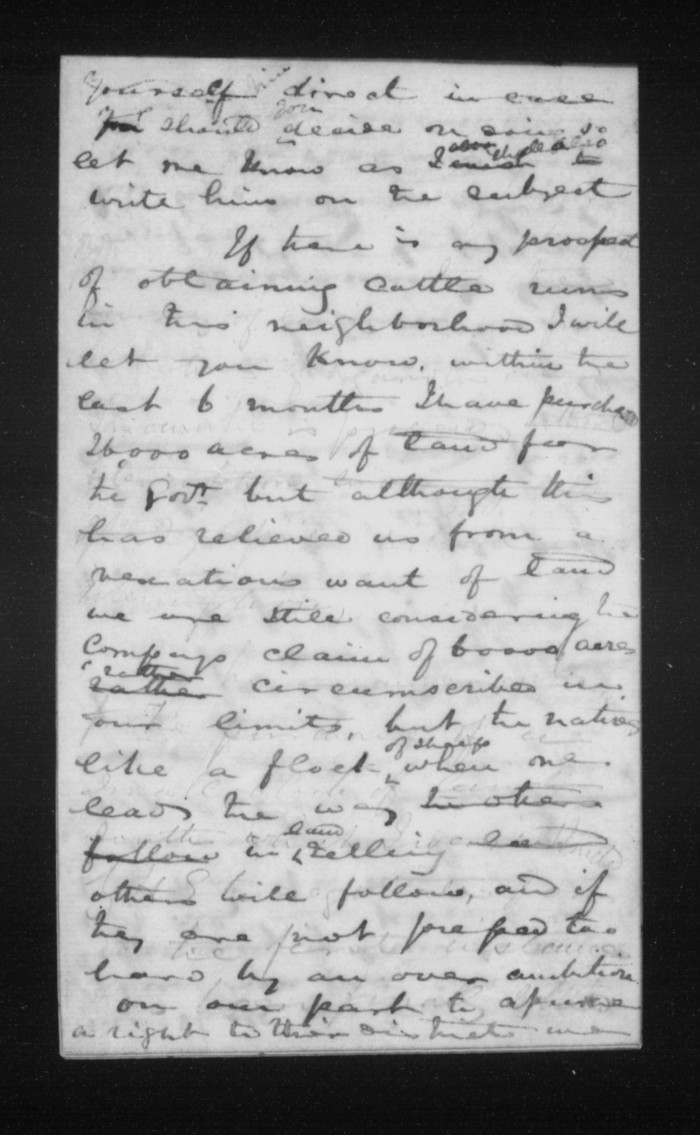 yourself direct in case
should you decide on doing so
let me know as I also to
write him on the subject
If there is any prospect
of obtaining cattle runs
in this neighborhood I will
let you know, within the
last 6 months I have purchas
26,000 acres of land for
the Govt. but although this
has relieved us from a
vexatious want of land
we are still considering the
Companys claim of 60000 acres
rather rather circumscribed in
our limits, but the natives
like a flock of sheep when one
leads the way the others
follow in land selling
others will follow, and if
they are not pressed too
hard by an over ambition
on our part to assume
a right to their district we